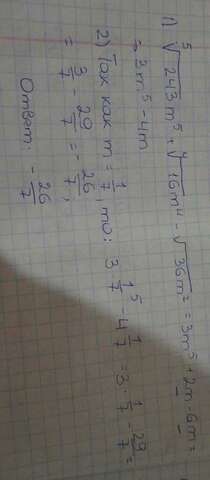 1) ⁵√243m⁵ + ⁴√16m⁴ - √36m² = 3m⁵ + 2m - 6m =
= 3m⁵ - 4m
2) Так как m = 1/7, то: 3 1/7⁵ - 4 1/7 = 3 · 1/7 - 29/7 =
= 3/7 - 29/7 = - 26/7;
Ответ: - 26/7